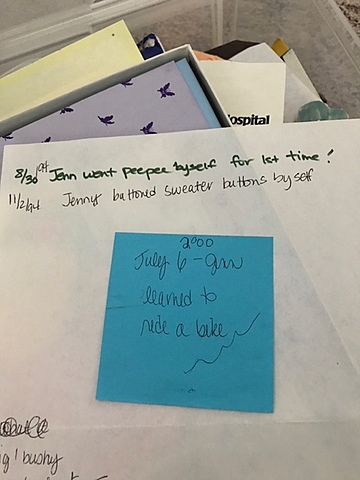 Hospital
8/30/94 Jenn went peepee byself for 1st time!
11/2/94 Jenny buttoned sweater buttons byself
2000
July 6 - Jenn
learned to
ride a bike
big! bushy